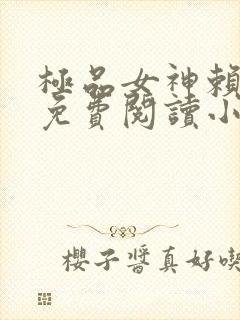 極品女神賴
免費閱讀小
櫻子醬真好喫